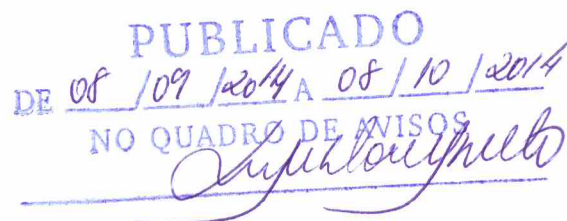 PUBLICADO
DE 08/09/2014 A 08/10/2014
NO QUADRO DE AVISOS